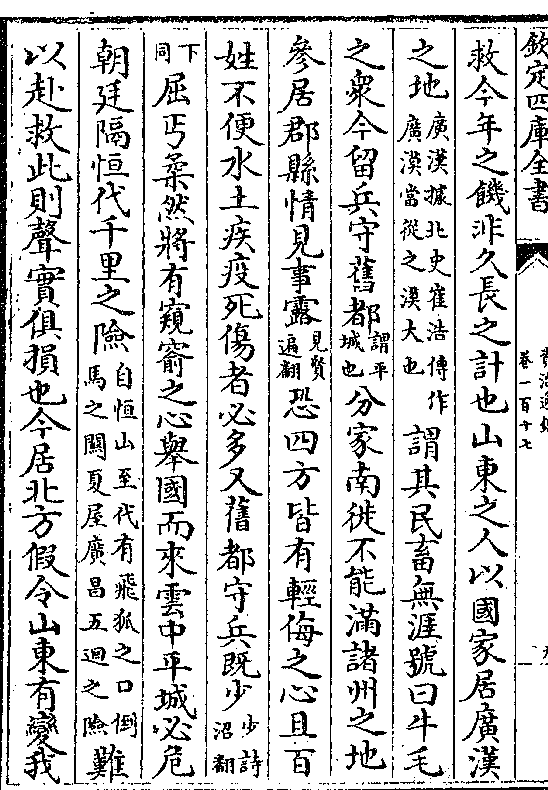 欽定四庫全書
卷一百十七
救今年之饑非久長之計也山東之人以國家居廣漢
之地廣漢據北史崔浩傳作廣漠當從之漠大也謂其民畜無涯號曰牛毛
之衆今留兵守舊都謂平城也分家南徙不能滿諸州之地
參居郡縣情見事露見賢遍翻恐四方皆有輕侮之心且百
姓不便水土疾疫死傷者必多又舊都守兵既少少詩沼翻
下同屈丐柔然將有窺窬之心舉國而來雲中平城必危
朝廷隔恒代千里之險自恒山至代有飛狐之口倒馬之關夏屋廣昌五迴之險難
以赴救此則聲實俱損也今居北方假令山東有變我